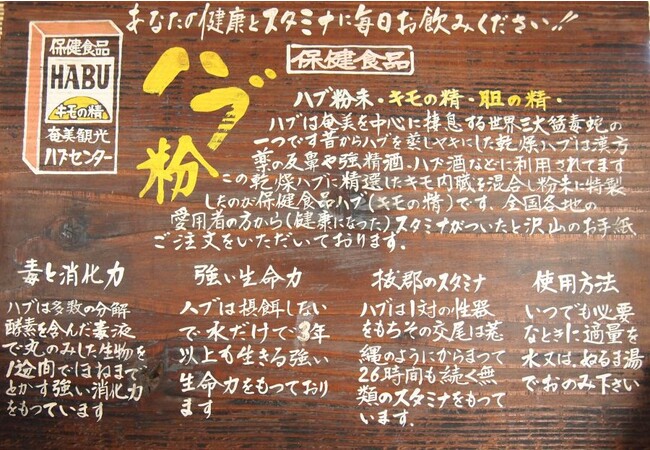 あなたの健康とスタミナに毎日お飲みください!!
保健食品
HABU
キモの精
奄美観光
ハブセンター
ハブ粉
保健食品
ハブ粉末・キモの精・胆の精・
ハブは奄美を中心に棲息する世界三大猛毒蛇の
一つです昔からハブを蒸しヤキにした乾燥ハブは漢方
薬の反鼻や強精酒、ハブ酒などに利用されてます
この乾燥ハブに精選したキモ内蔵を混合し粉末に特製
したのが保健食品ハブ(キモの精)です、全国各地の
愛用者の方から(健康になった)スタミナがついたと沢山のお手紙
ご注文をいただいております。
毒と消化力
ハブは多数の分解
酵素を含んだ毒液
で丸のみした生物を
1晩間でほねまで
とかす強い消化力
をもっています
強い生命力
ハブは摂餌しない
で水だけで3年
以上も生きる強い
生命力をもっており
ます
抜郡のスタミナ
ハブは1対の性器
をもちその交尾は荵
縄のようにからまって
26時間も続く無
類のスタミナをもって
います。
使用方法
いつでも必要
なときに適量を
水又は、ぬるま湯
でおのみ下さい